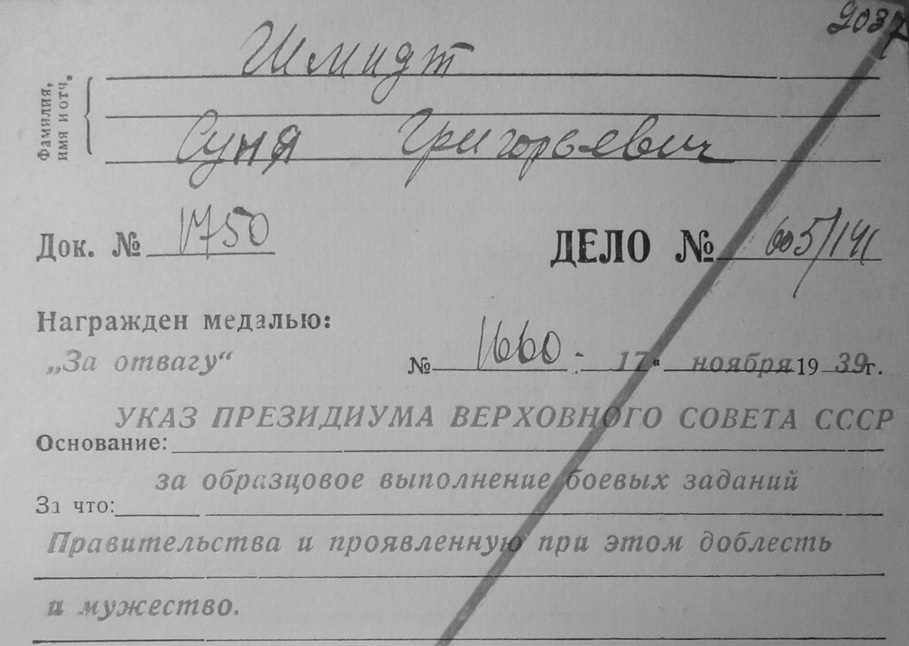 2037
Шмидт
Фамилия,
имя и отч.
Суня Григорьевич
Док. № 1750 ДЕЛО № 605/141
Награжден медалью:
„За отвагу“ № 1660 : 17 “ ноября 19 39 г.
УКАЗ ПРЕЗИДИУМА ВЕРХОВНОГО СОВЕТА СССР
Основание:
за образцовое выполнение боевых заданий
За что:
Правительства и проявленную при этом доблесть
и мужество.